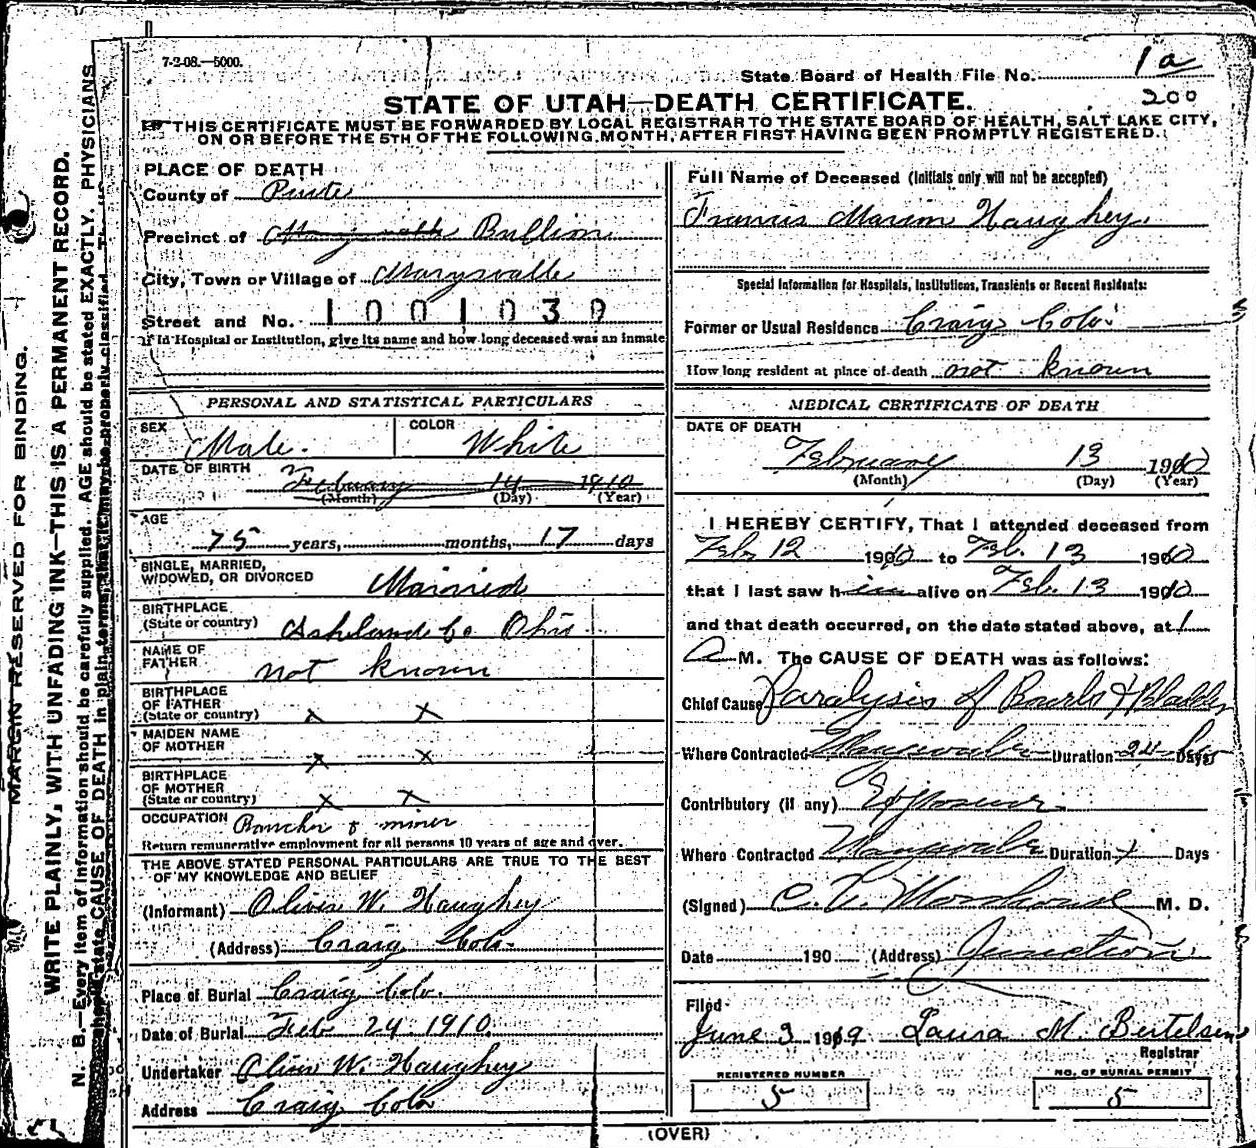 7-2-08.—5000.
State Board of Health File No. 1a
200
STATE OF UTAH—DEATH CERTIFICATE.
THIS CERTIFICATE MUST BE FORWARDED BY LOCAL REGISTRAR TO THE STATE BOARD OF HEALTH, SALT LAKE CITY,
ON OR BEFORE THE 5TH OF THE FOLLOWING MONTH, AFTER FIRST HAVING BEEN PROMPTLY REGISTERED.
MARGIN RESERVED FOR BINDING.
WRITE PLAINLY, WITH UNFADING INK—THIS IS A PERMANENT RECORD.
N. B.—Every item of information should be carefully supplied. AGE should be stated EXACTLY. PHYSICIANS
should state CAUSE OF DEATH in plain terms, that it may be properly classified.
PLACE OF DEATH
County of Piute
Precinct of Marysvale Bullion
City, Town or Village of Marysvale
Street and No. 1001039
If in Hospital or Institution, give its name and how long deceased was an inmate
PERSONAL AND STATISTICAL PARTICULARS
SEX Male.
COLOR White
DATE OF BIRTH February 14 1910
(Month) (Day) (Year)
AGE 75 years, months, 17 days
SINGLE, MARRIED,
WIDOWED, OR DIVORCED Married
BIRTHPLACE
(State or country) Ashland Co Ohio
NAME OF
FATHER not known
BIRTHPLACE
OF FATHER
(State or country) x x
MAIDEN NAME
OF MOTHER x x
BIRTHPLACE
OF MOTHER
(State or country) x x
OCCUPATION Rancher & miner
Return remunerative employment for all persons 10 years of age and over.
THE ABOVE STATED PERSONAL PARTICULARS ARE TRUE TO THE BEST
OF MY KNOWLEDGE AND BELIEF
(Informant) Oliver W. Haughey
(Address) Craig Colo.
Place of Burial Craig Colo.
Date of Burial Feb 24 1910
Undertaker Oliver W. Haughey
Address Craig Colo
Full Name of Deceased (Initials only will not be accepted)
Francis Marion Haughey.
Special Information for Hospitals, Institutions, Transients or Recent Residents:
Former or Usual Residence Craig Colo.
How long resident at place of death not known
MEDICAL CERTIFICATE OF DEATH
DATE OF DEATH
February 13 1910
(Month) (Day) (Year)
I HEREBY CERTIFY, That I attended deceased from
Feb 12 1910 to Feb. 13 1910
that I last saw him alive on Feb. 13 1910
and that death occurred, on the date stated above, at 1
A M. The CAUSE OF DEATH was as follows:
Chief Cause Paralysis of Bowels & Bladder
Where Contracted Marysvale Duration 24 hrs Days
Contributory (if any) Exposure
Where Contracted Marysvale Duration Days
(Signed) M. D.
Date 190 (Address) Junction
Filed
June 3 1909 Laura M. Bertelsen
Registrar
REGISTERED NUMBER
5
NO. OF BURIAL PERMIT
5
(OVER)